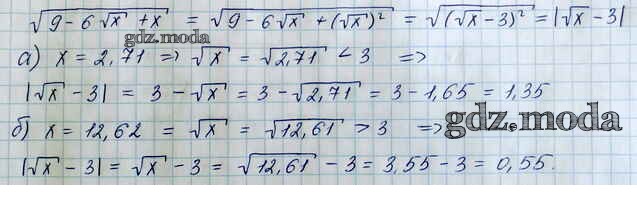 √(9 - 6√x + x) = √(9 - 6√x + (√x)²) = √((√x - 3)²) = |√x - 3|
gdz.moda
а) x = 2,71 => √x = √2,71 < 3 =>
|√x - 3| = 3 - √x = 3 - √2,71 = 3 - 1,65 = 1,35
б) x = 12,62 = √x = √12,61 > 3 => gdz.moda
|√x - 3| = √x - 3 = √12,61 - 3 = 3,55 - 3 = 0,55.